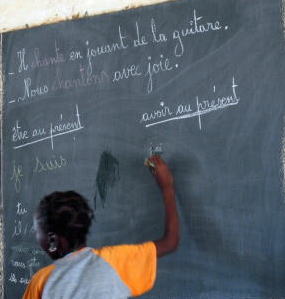 - Il chante en jouant de la guitare.
- Nous chantons avec joie.
être au présent
je suis
tu
avoir au présent
j'ai